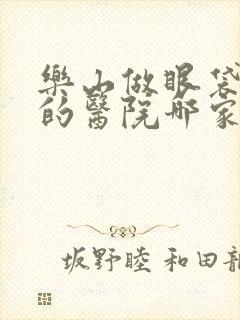 樂山做眼袋
的醫院哪家
坂野睦 和田龍